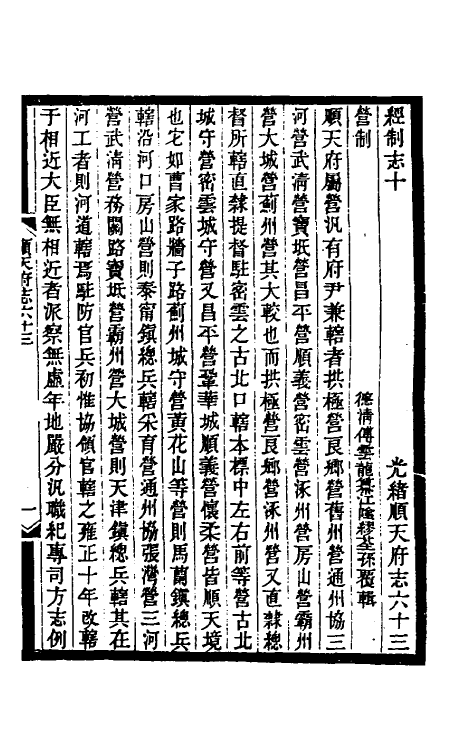 經制志十　光緒順天府志六十三
營制　德淸傅雲龍纂江陰繆荃孫覆輯
順天府屬營汛有府尹兼轄者拱極營良鄉營舊州營通州協三
河營武淸營寶坻營昌平營順義營密雲營涿州營房山營霸州
營大城營薊州營其大較也而拱極營良鄉營涿州營又直隸總
督所轄直隸提督駐密雲之古北口轄本標中左右前等營古北
城守營密雲城守營又昌平營鞏華城順義營懷柔營皆順天境
也它如曹家路牆子路薊州城守營黃花山等營則馬蘭鎭總兵
轄沿河口房山營則泰甯鎭總兵轄采育營通州協張灣營三河
營武淸營務關路寶坻營霸州營大城營則天津鎭總兵轄其在
河工者則河道轄焉駐防官兵初惟協領官轄之雍正十年改轄
于相近大臣無相近者派察無虛年地嚴分汛職紀專司方志例
順天府志六十三　一